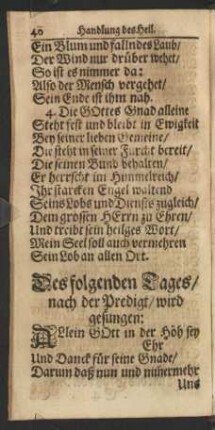 40 Handlung des Heil.
Ein Blum und fallndes Laub/
Der Wind nur drüber wehet/
So ist es nimmer da:
Also der Mensch vergehet/
Sein Ende ist ihm nah.
4. Die GOttes Gnad alleine
Steht fest und bleibt in Ewigkeit
Bey seiner lieben Gemeine/
Die steht in seiner Furcht bereit/
Die seinen Bund behalten/
Er herrscht im Himmelreich/
Ihr starcken Engel waltend
Seins Lobs und Diensts zugleich/
Dem grossen HErrn zu Ehren/
Und treibt sein heilges Wort/
Mein Seel soll auch vermehren
Sein Lob an allen Ort.
Des folgenden Tages/
nach der Predigt/ wird
gesungen:
ALlein GOtt in der Höh sey
Ehr
Und Danck für seine Gnade/
Darum daß nun und nim̃ermehr
Uns